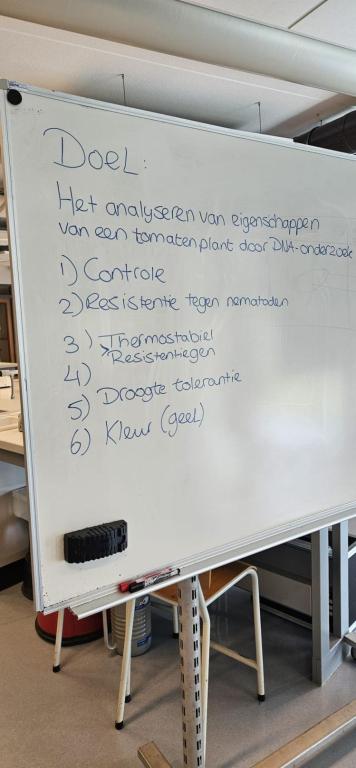 DOEL:
Het analyseren van eigenschappen
van een tomatenplant door DNA-onderzoek
1) Controle
2) Resistentie tegen nematoden
3) Thermostabiel
Resistentiegen
4)
5) Droogte tolerantie
6) Kleur (geel)